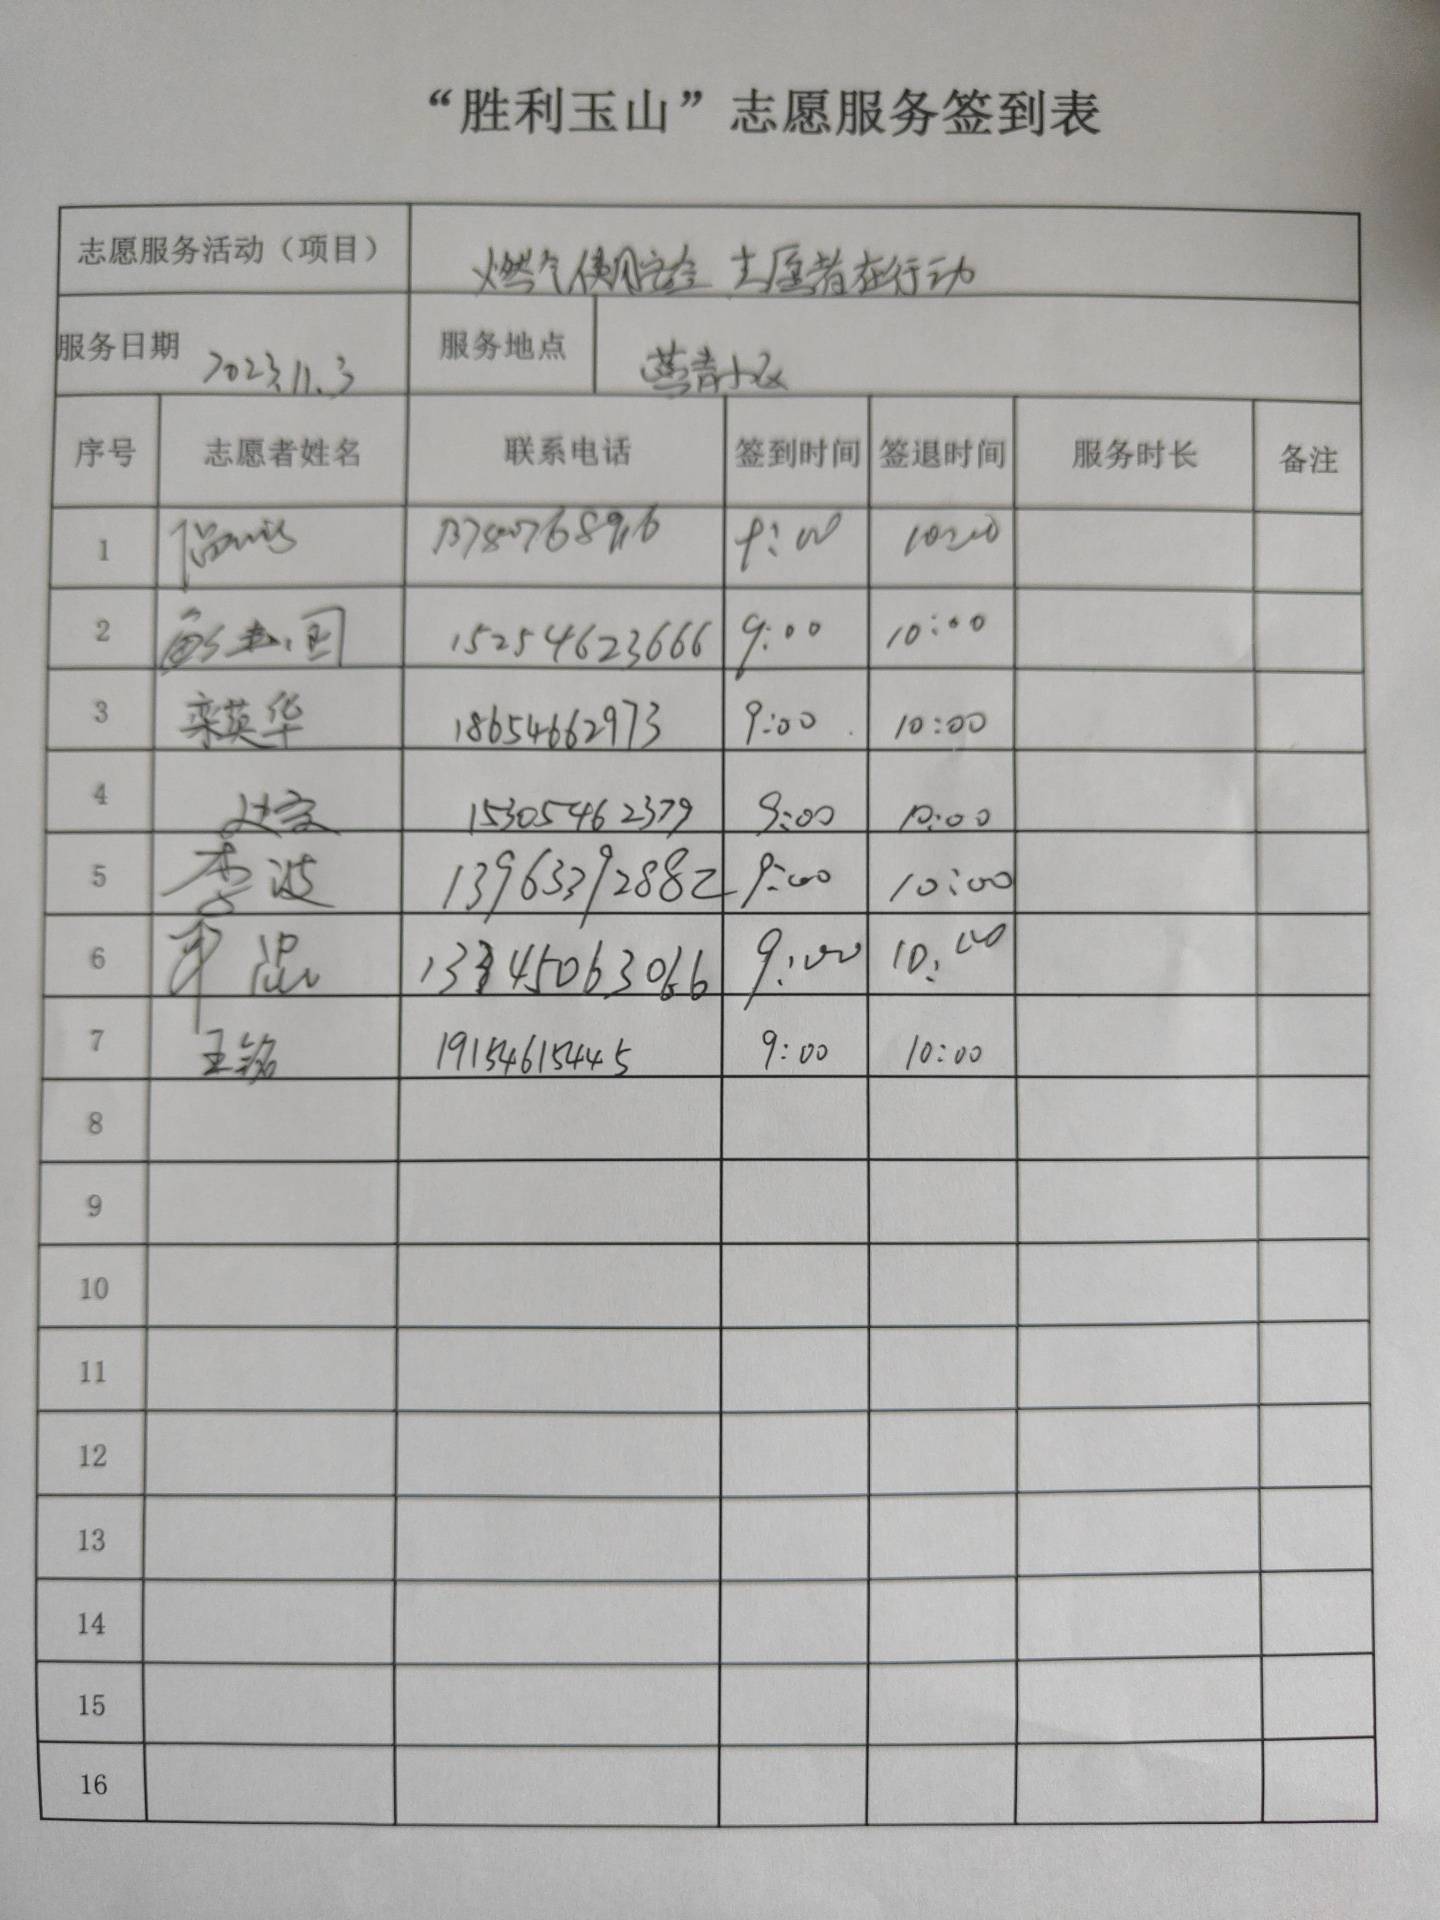 “胜利玉山”志愿服务签到表
志愿服务活动（项目） 燃气使用安全 志愿者在行动
服务日期 2023.11.3 服务地点 小区
序号 志愿者姓名 联系电话 签到时间 签退时间 服务时长 备注
1 9:00 10:00
2 15254623666 9:00 10:00
3 栾英华 18654662973 9:00 10:00
4 15305462379 9:00 10:00
5 李波 13963392882 9:00 10:00
6 13345063066 9:00 10:00
7 王铭 19154615445 9:00 10:00
8
9
10
11
12
13
14
15
16